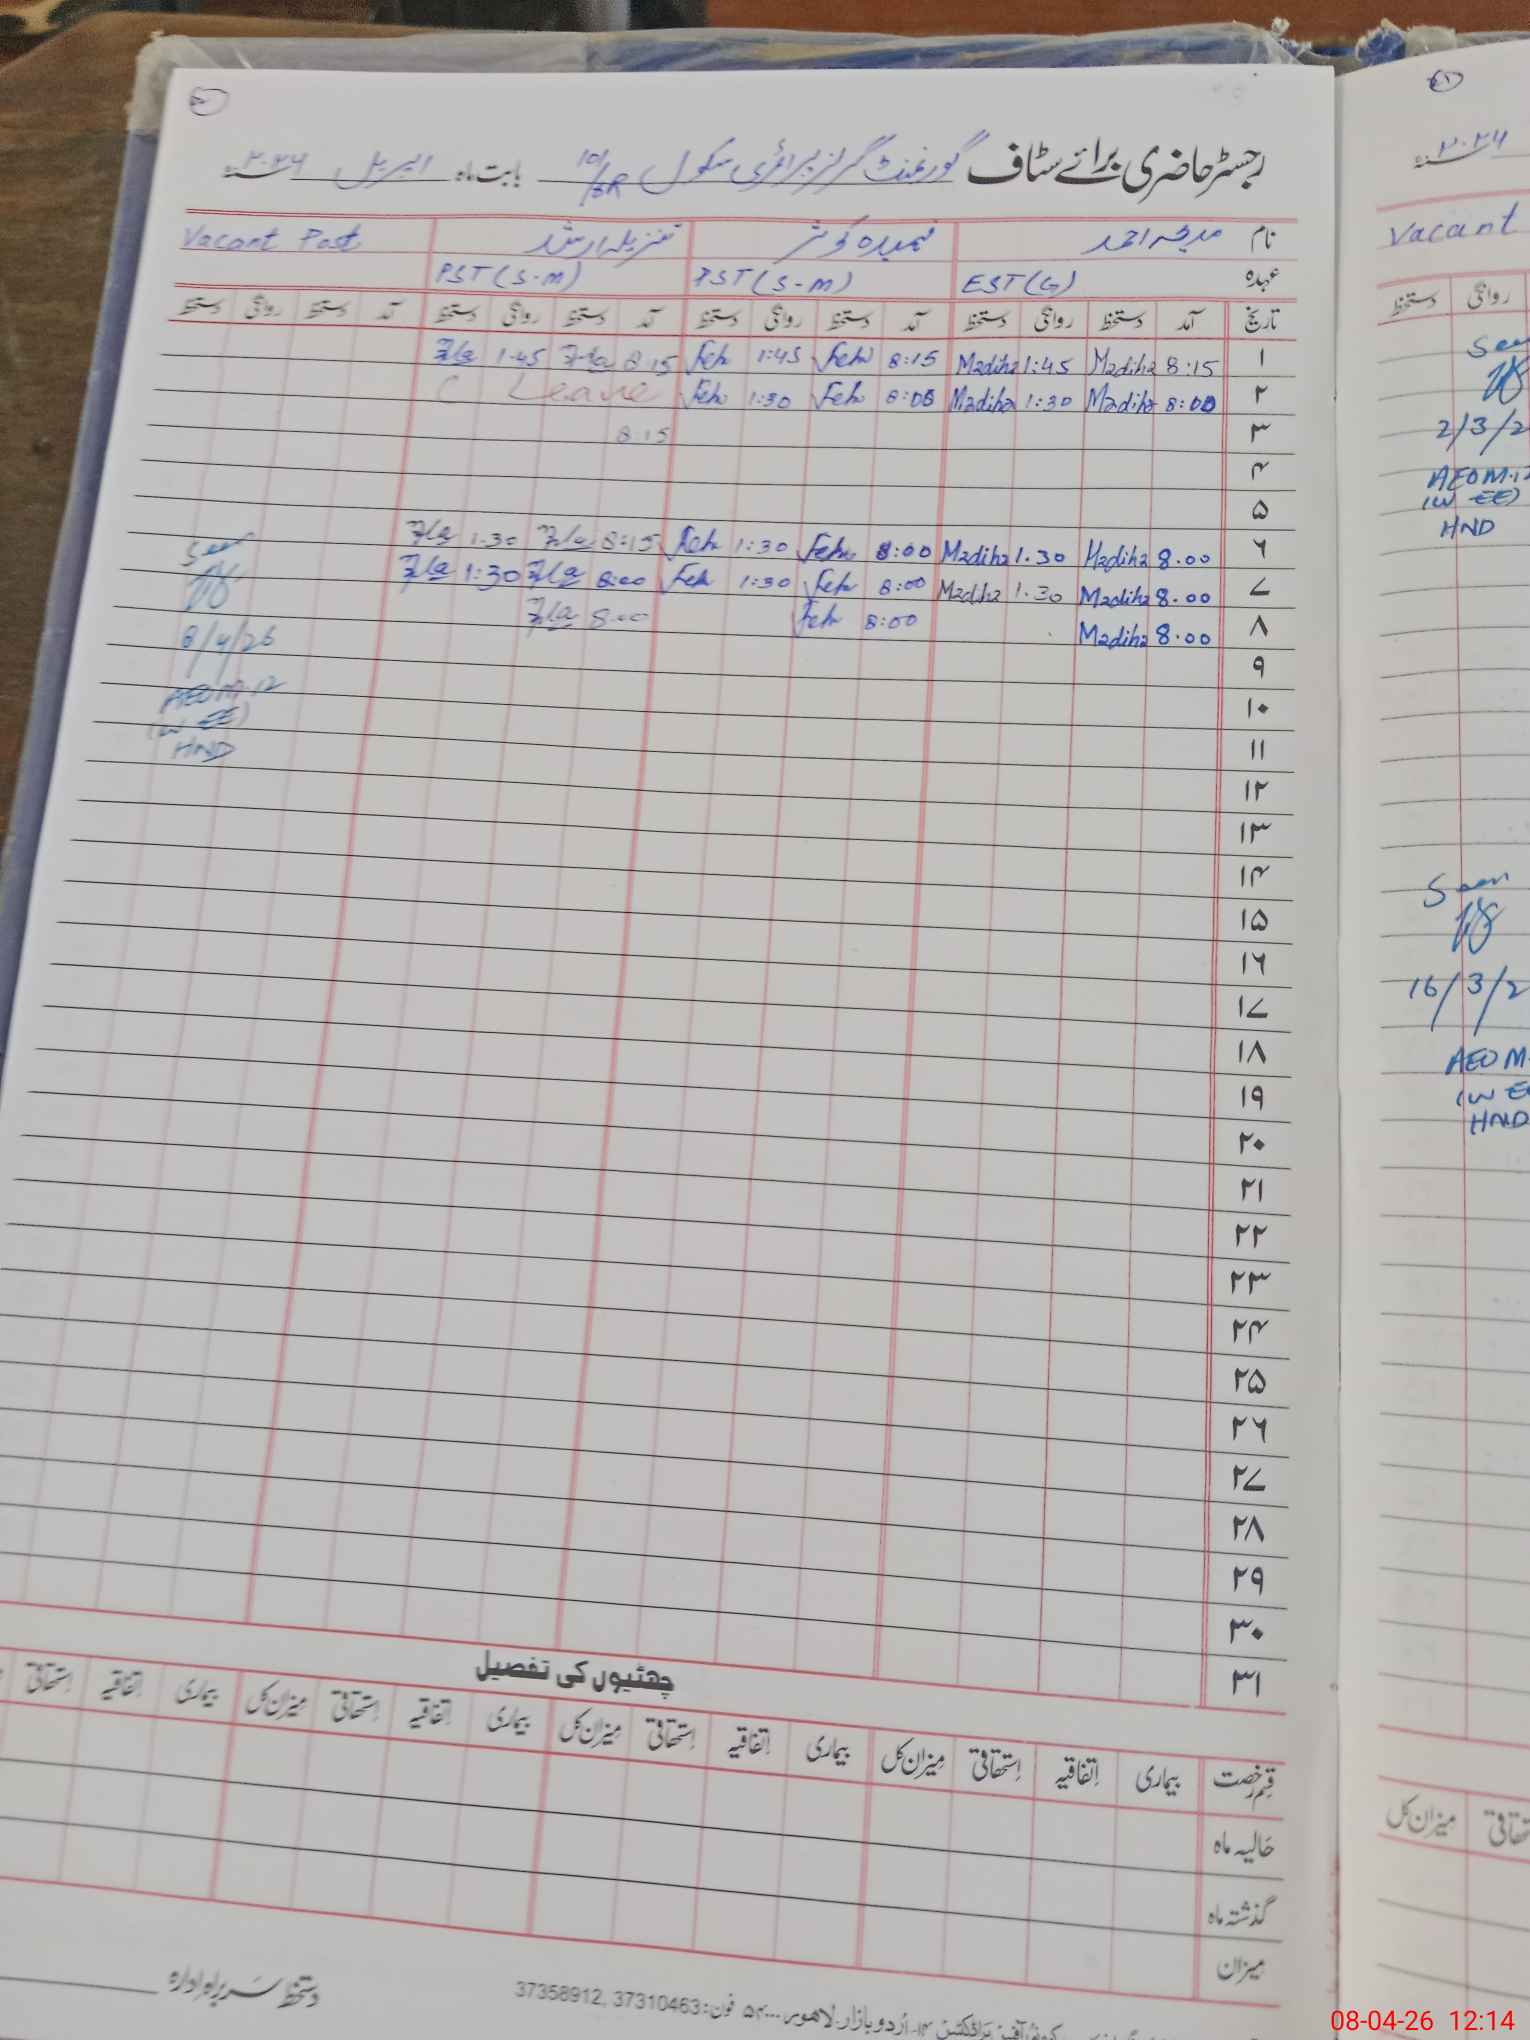 رجسٹر حاضری برائے سٹاف گورنمنٹ گرلز پرائمری سکول 101/6R بابت ماہ اپریل ۲۰۲۶
نام مدیحہ احمد فہمیدہ کوثر تنزیلہ ارشد Vacant Post
عہدہ EST(G) PST(S-M) PST(S-M)
تاریخ آمد دستخط روانگی دستخط آمد دستخط روانگی دستخط آمد دستخط روانگی دستخط آمد دستخط روانگی دستخط
۱ 8:15 Madiha 1:45 Madiha 8:15 Feh 1:45 Feh 8:15 1:45
۲ 8:00 Madiha 1:30 Madiha 8:00 Feh 1:30 Feh C Leave
۳ 8:15
۴
۵
۶ 8.00 Madiha 1.30 Madiha 8:00 Feh 1:30 Feh 8:15 1:30
۷ 8.00 Madiha 1.30 Madiha 8:00 Feh 1:30 Feh 8:00 1:30
۸ 8.00 Madiha 8:00 Feh 8:00
۹
۱۰
۱۱
۱۲
۱۳
۱۴
۱۵
۱۶
۱۷
۱۸
۱۹
۲۰
۲۱
۲۲
۲۳
۲۴
۲۵
۲۶
۲۷
۲۸
۲۹
۳۰
۳۱
Seen
8/4/26
AEO M-12
(W-EE)
HND
چھٹیوں کی تفصیل
قسم رخصت بیماری اتفاقیہ استحقاقی میزان کل بیماری اتفاقیہ استحقاقی میزان کل بیماری اتفاقیہ استحقاقی میزان کل بیماری اتفاقیہ استحقاقی
حالیہ ماہ
گذشتہ ماہ
میزان
دستخط سربراہ ادارہ
اردو بازار لاہور فون: 37310463, 37358912
۲۰۲۶
Vacant
روانگی دستخط
Seen
2/3/2
AEO M-12
(W-EE)
HND
Seen
16/3/2
AEO M
(W E
HND
میزان کل
08-04-26 12:14